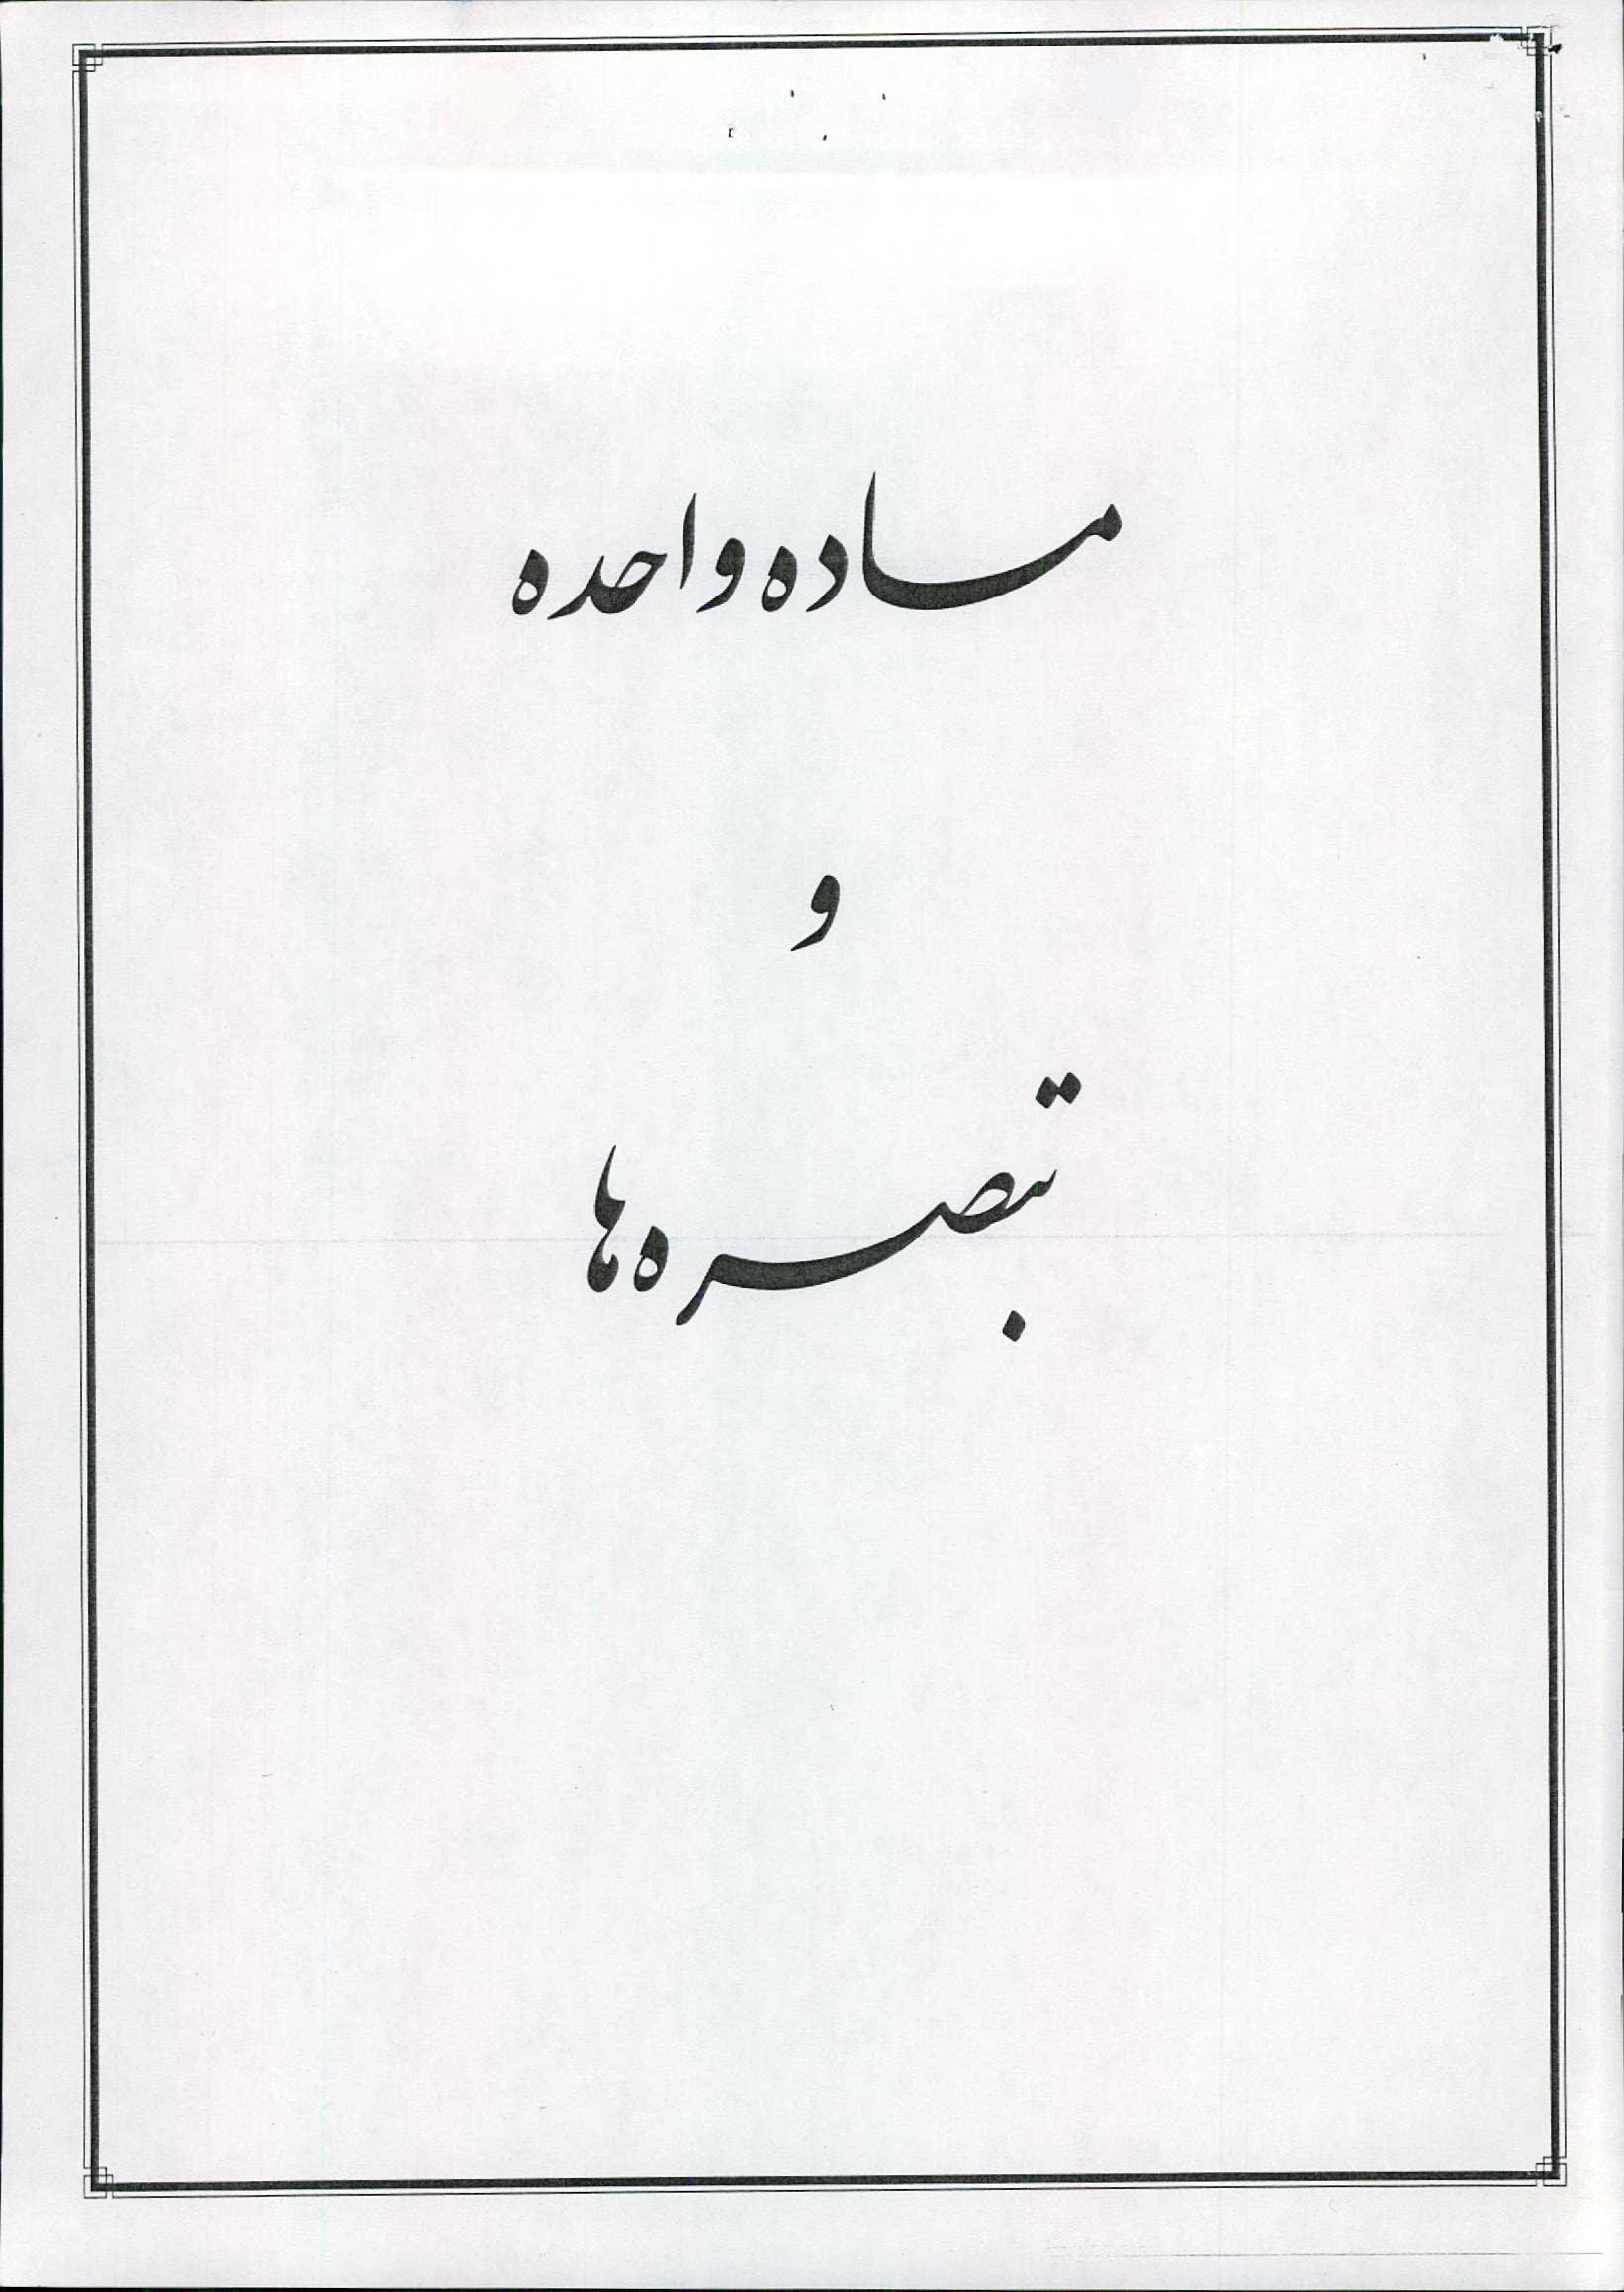 ماده واحده
و
تبصره ها